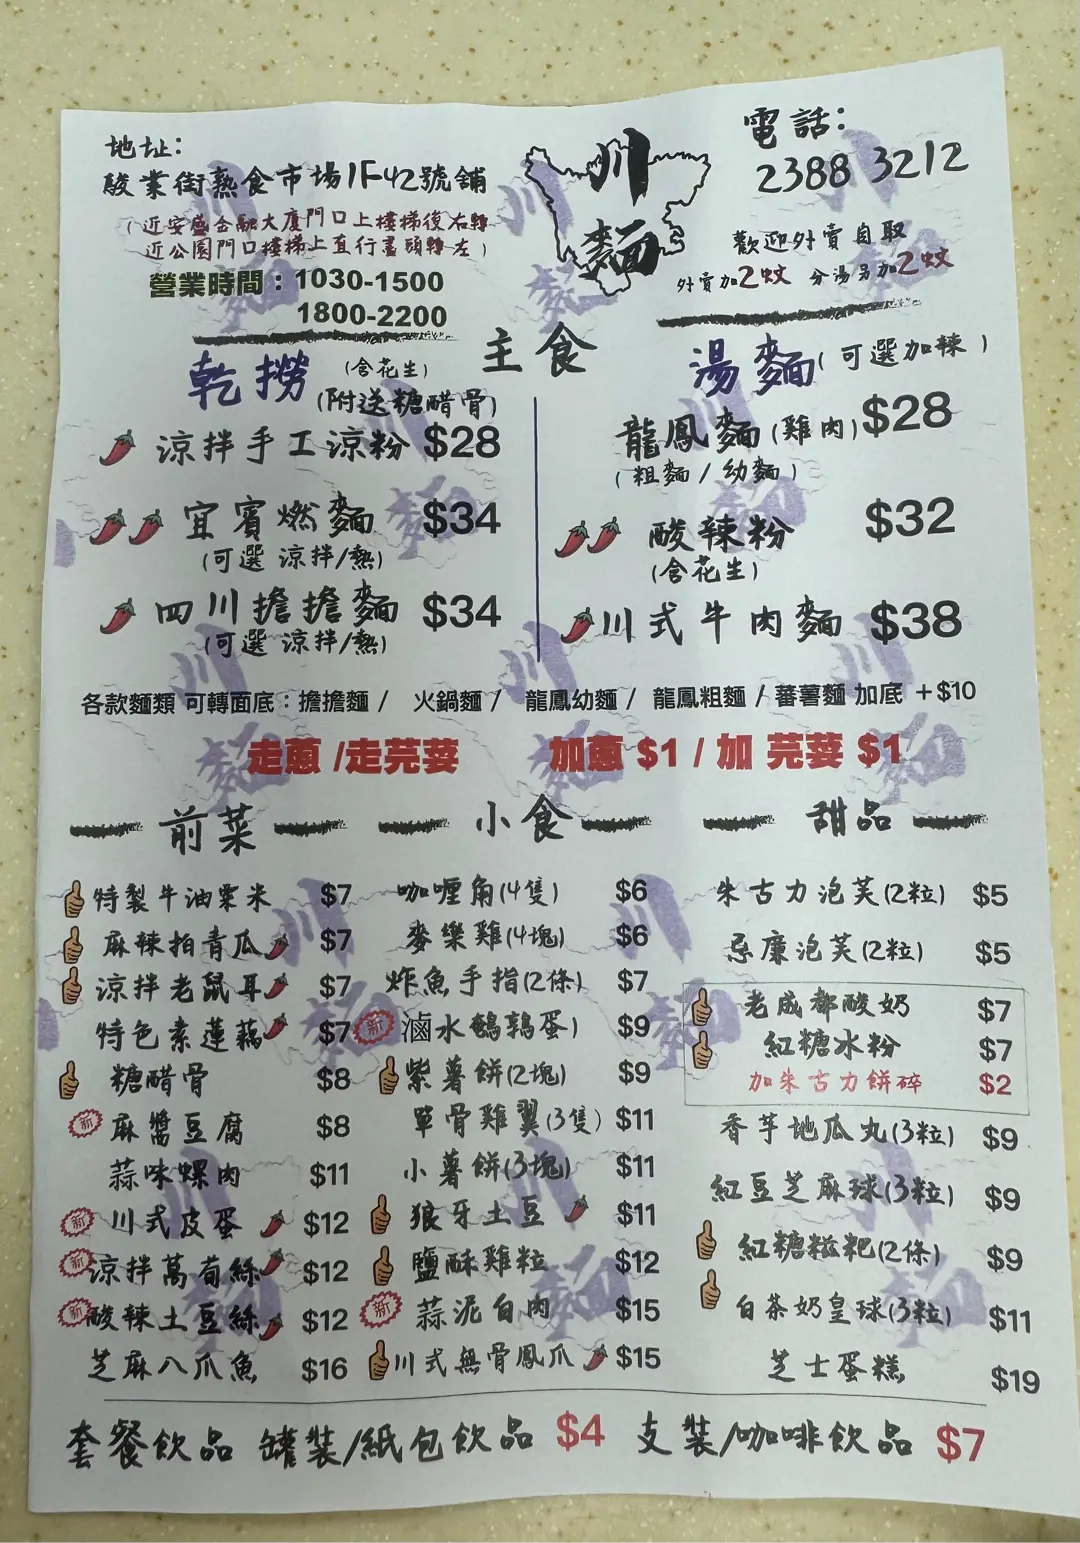 地址：
駿業街熟食市場1F42號舖
（近安盛金融大廈門口上樓梯後右轉
近公園門口樓梯上直行盡頭轉左）
營業時間：1030-1500
1800-2200
川麵
電話：
2388 3212
歡迎外賣自取
外賣加2蚊 分湯另加2蚊
主食
乾撈（含花生）
（附送糖醋骨）
涼拌手工涼粉 $28
宜賓燃麵 $34
（可選 涼拌/熱）
四川擔擔麵 $34
（可選 涼拌/熱）
湯麵（可選加辣）
龍鳳麵（雞肉）$28
（粗麵/幼麵）
酸辣粉 $32
（含花生）
川式牛肉麵 $38
各款麵類 可轉面底：擔擔麵 / 火鍋麵 / 龍鳳幼麵 / 龍鳳粗麵 / 蕃薯麵 加底 +$10
走蔥 /走芫荽 加蔥 $1 / 加 芫荽 $1
前菜
特製牛油粟米 $7
麻辣拍青瓜 $7
涼拌老鼠耳 $7
特色素蓮藕 $7
糖醋骨 $8
新 麻醬豆腐 $8
蒜味螺肉 $11
新 川式皮蛋 $12
新 涼拌萵荀絲 $12
新 酸辣土豆絲 $12
芝麻八爪魚 $16
小食
咖喱角(4隻) $6
麥樂雞(4塊) $6
炸魚手指(2條) $7
新 滷水鵪鶉蛋) $9
紫薯餅(2塊) $9
單骨雞翼(3隻) $11
小薯餅(3塊) $11
狼牙土豆 $11
鹽酥雞粒 $12
新 蒜泥白肉 $15
川式無骨鳳爪 $15
甜品
朱古力泡芙(2粒) $5
忌廉泡芙(2粒) $5
老成都酸奶 $7
紅糖冰粉 $7
加朱古力餅碎 $2
香芋地瓜丸(3粒) $9
紅豆芝麻球(3粒) $9
紅糖糍粑(2條) $9
白茶奶皇球(3粒) $11
芝士蛋糕 $19
套餐飲品 罐裝/紙包飲品 $4 支裝/咖啡飲品 $7